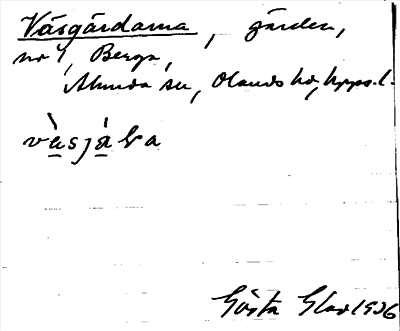 Väsgärdarna, gärden,
no 1, Berga,
Almunda sn, Olands hd, Upps. l.
vàsjàḷa
Gösta Glad 1936